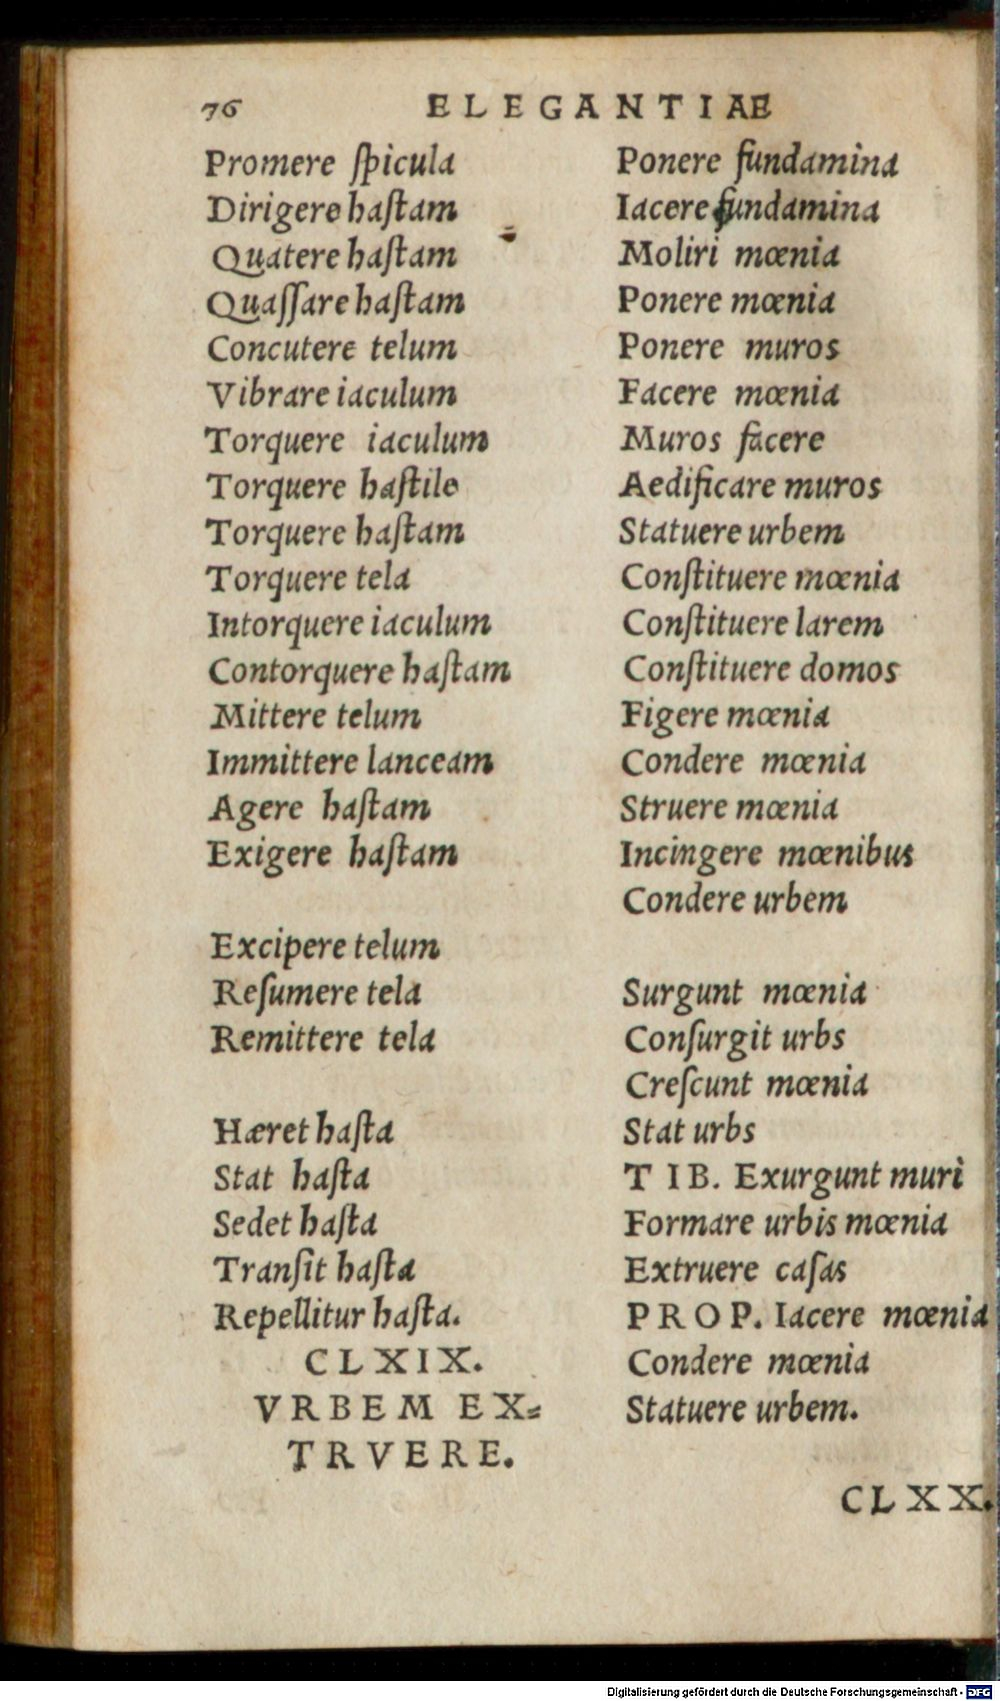 76 ELEGANTIAE
Promere ſpicula
Dirigere haſtam
Quatere haſtam
Quaſſare haſtam
Concutere telum
Vibrare iaculum
Torquere iaculum
Torquere haſtile
Torquere haſtam
Torquere tela
Intorquere iaculum
Contorquere haſtam
Mittere telum
Immittere lanceam
Agere haſtam
Exigere haſtam
Excipere telum
Reſumere tela
Remittere tela
Hæret haſta
Stat haſta
Sedet haſta
Tranſit haſta
Repellitur haſta.
CLXIX.
VRBEM EX=
TRVERE.
Ponere fundamina
Iacere fundamina
Moliri mœnia
Ponere mœnia
Ponere muros
Facere mœnia
Muros facere
Aedificare muros
Statuere urbem
Conſtituere mœnia
Conſtituere larem
Conſtituere domos
Figere mœnia
Condere mœnia
Struere mœnia
Incingere mœnibus
Condere urbem
Surgunt mœnia
Conſurgit urbs
Creſcunt mœnia
Stat urbs
TIB. Exurgunt muri
Formare urbis mœnia
Extruere caſas
PROP. Iacere mœnia
Condere mœnia
Statuere urbem.
CLXX.
Digitalisierung gefördert durch die Deutsche Forschungsgemeinschaft - DFG